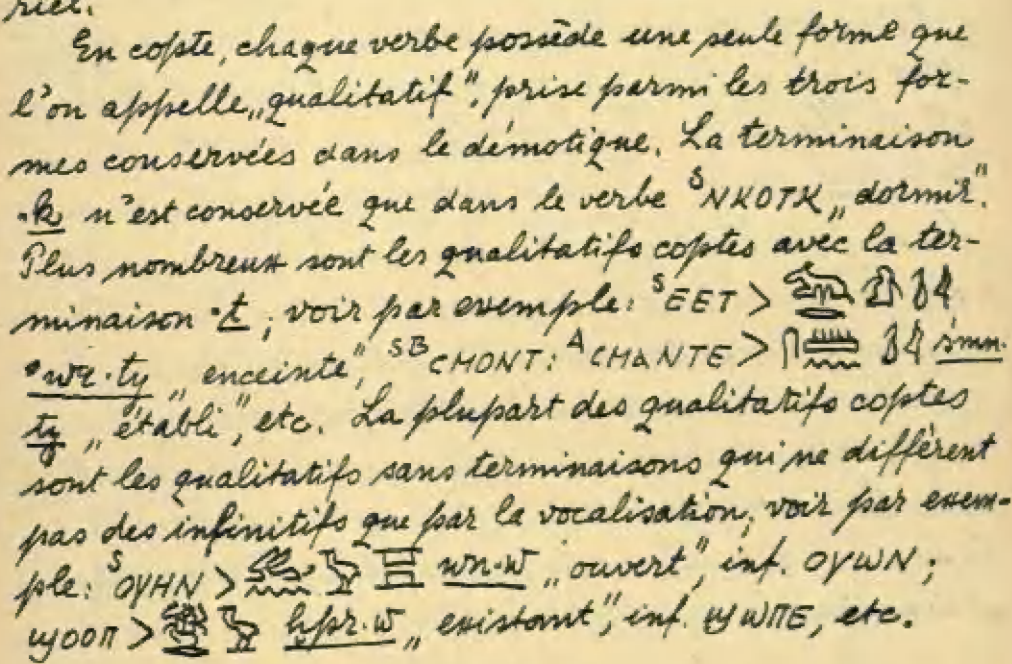 riel.
En copte, chaque verbe possède une seule forme que
l'on appelle „qualitatif", prise parmi les trois for-
mes conservées dans le démotique. La terminaison
·k n'est conservée que dans le verbe ˢⲚⲔⲞⲦⲔ „dormir".
Plus nombreux sont les qualitatifs coptes avec la ter-
minaison ·t; voir par exemple: ˢⲈⲈⲦ >
·ty „enceinte", ˢᴮⲤⲘⲞⲚⲦ: ᴬⲤⲘⲀⲚⲦⲈ > śmn·
ty „établi", etc. La plupart des qualitatifs coptes
sont les qualitatifs sans terminaisons qui ne diffèrent
pas des infinitifs que par la vocalisation; voir par exem-
ple: ˢⲞⲨⲎⲚ > wn·w „ouvert", inf. ⲞⲨⲰⲚ;
ϢⲞⲞⲠ > ḫpr·w „existant", inf. ϢⲰⲠⲈ, etc.